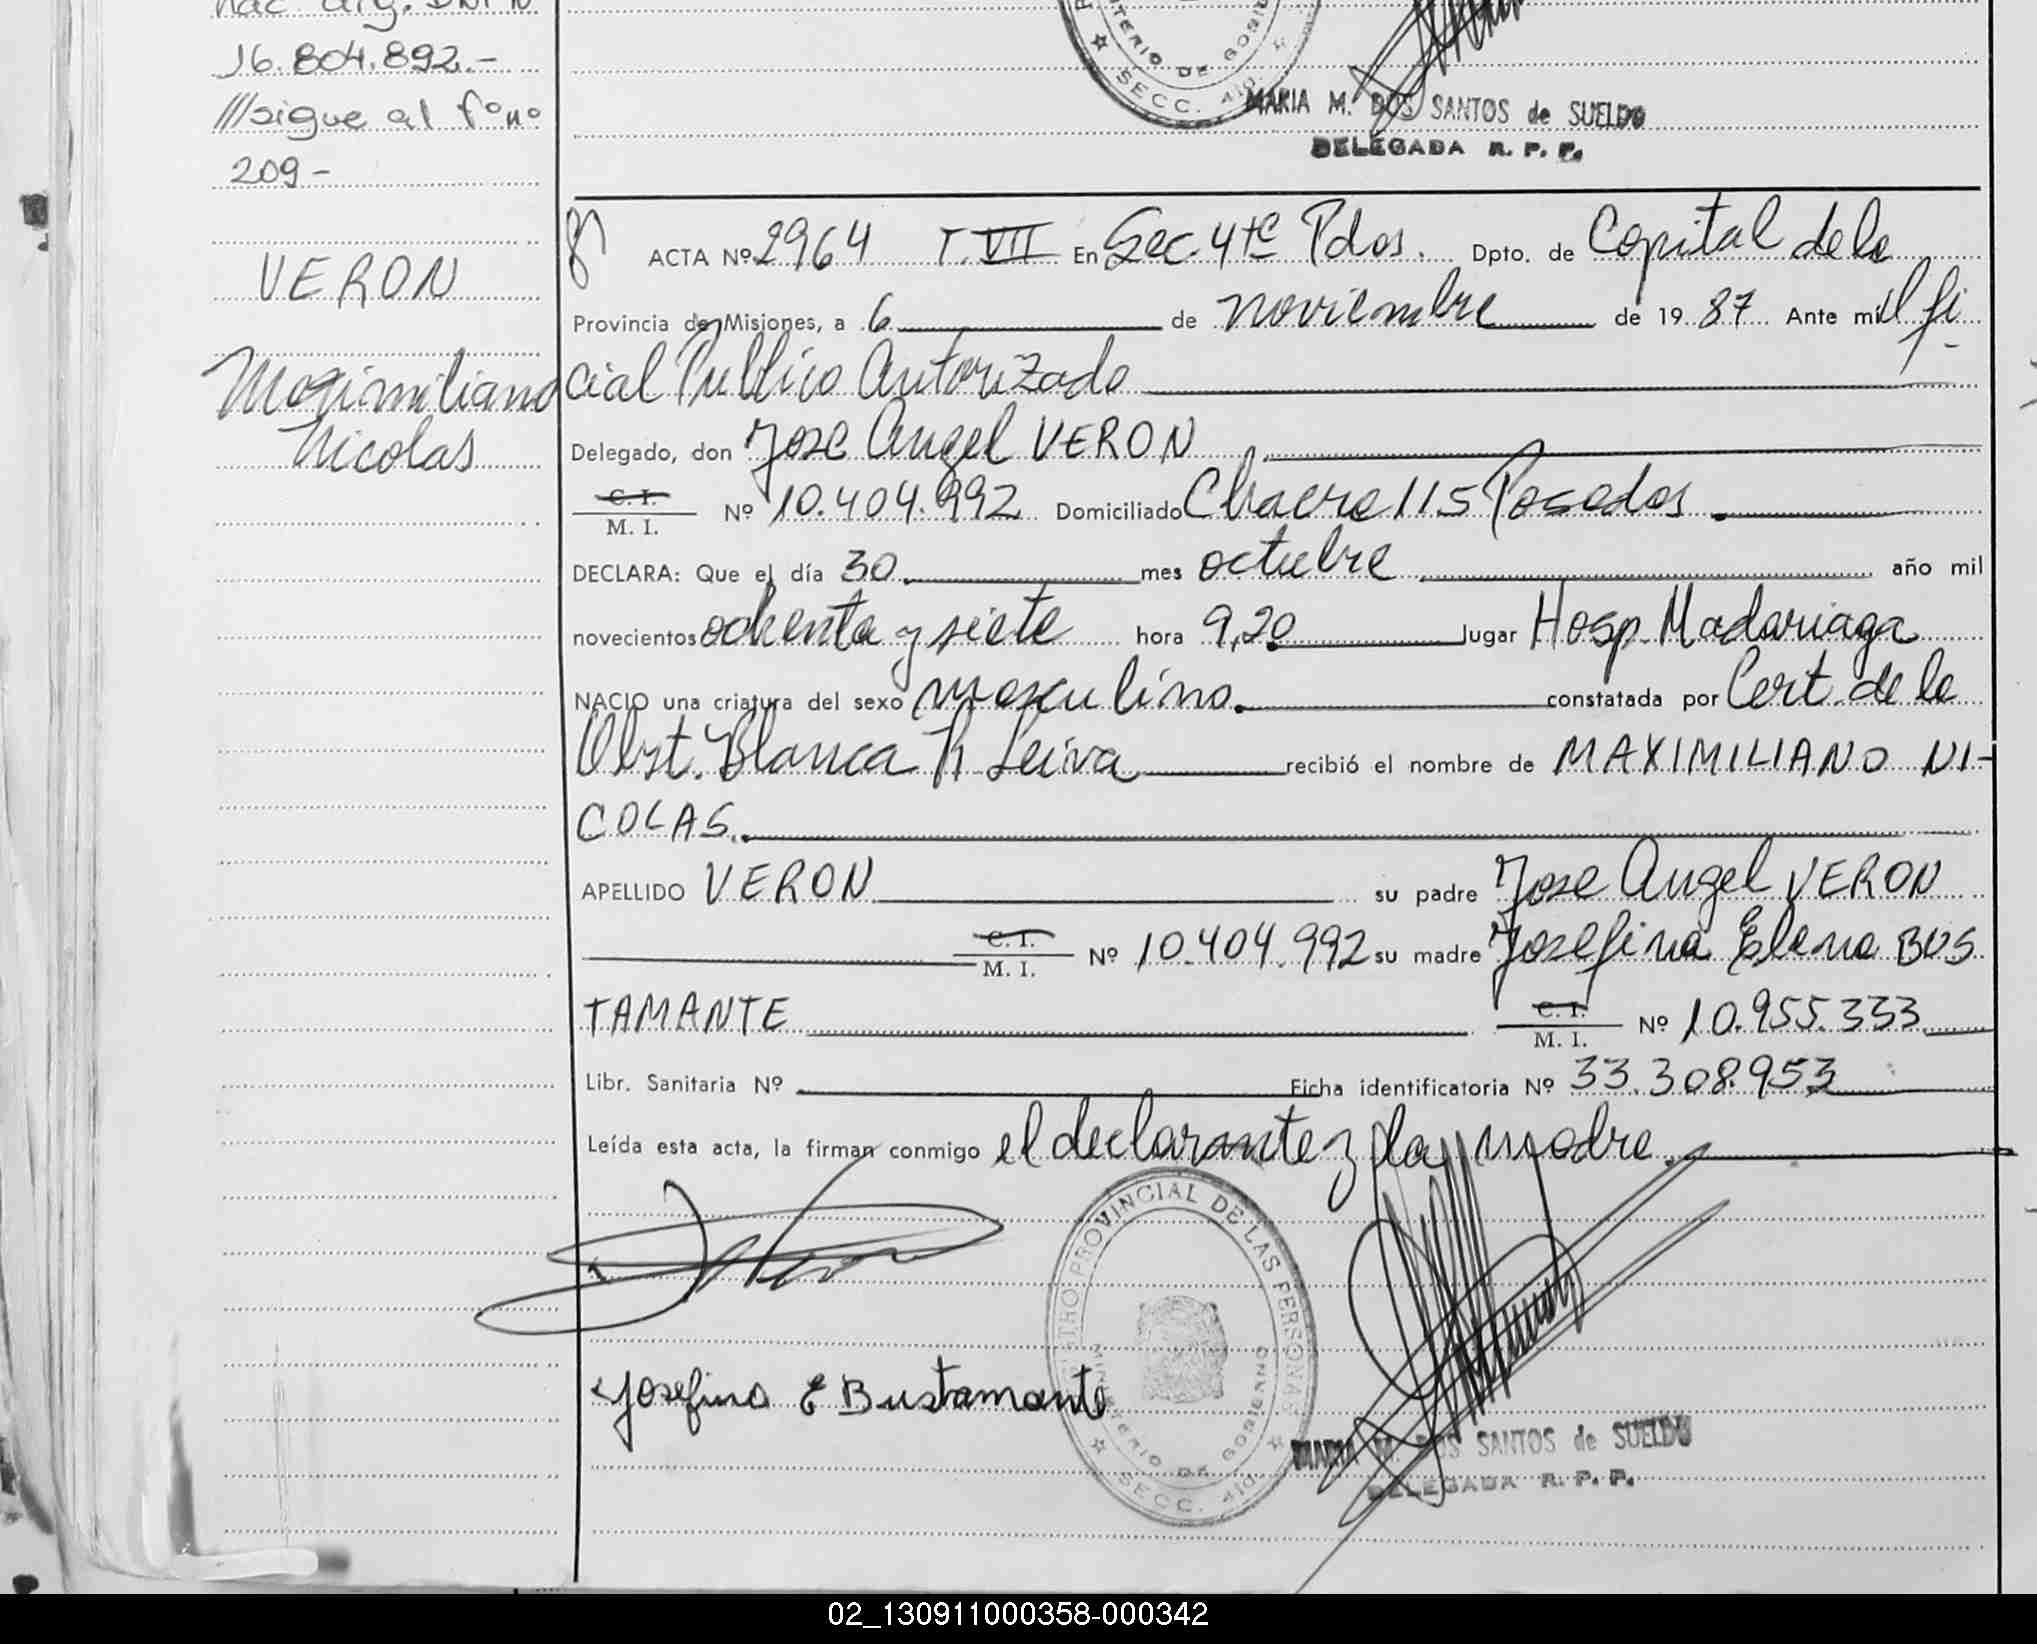 nac. arg. DNI N
16.804.892.-
///sigue al fº nº
209-
MINISTERIO DE GOBIERNO
SECC. 4ta.
MARIA M. DOS SANTOS de SUELDO
DELEGADA R. P. P.
VERON
Maximiliano
Nicolas
ACTA Nº 2964 T. VII En Sec. 4ta Pdas. Dpto. de Capital de la
Provincia de Misiones, a 6 de noviembre de 19 87 Ante mi Ofi-
cial Público Autorizado
Delegado, don Jose Angel VERON
C. I. / M. I. Nº 10.404.992 Domiciliado Chacra 115 Posadas.
DECLARA: Que el día 30 mes octubre año mil
novecientos ochenta y siete hora 9,20 lugar Hosp. Madariaga
NACIO una criatura del sexo masculino. constatada por Cert. de la
Obst. Blanca R Leiva recibió el nombre de MAXIMILIANO NI-
COLAS.
APELLIDO VERON su padre Jose Angel VERON
C. I. / M. I. Nº 10.404.992 su madre Josefina Elena BUS
TAMANTE C. I. / M. I. Nº 10.955.333
Libr. Sanitaria Nº Ficha identificatoria Nº 33.308.953
Leída esta acta, la firman conmigo el declarante y la madre.
REGISTRO PROVINCIAL DE LAS PERSONAS
MINISTERIO DE GOBIERNO
SECC. 4ta.
Josefina E Bustamante
MARIA M. DOS SANTOS de SUELDO
DELEGADA R. P. P.
02_130911000358-000342